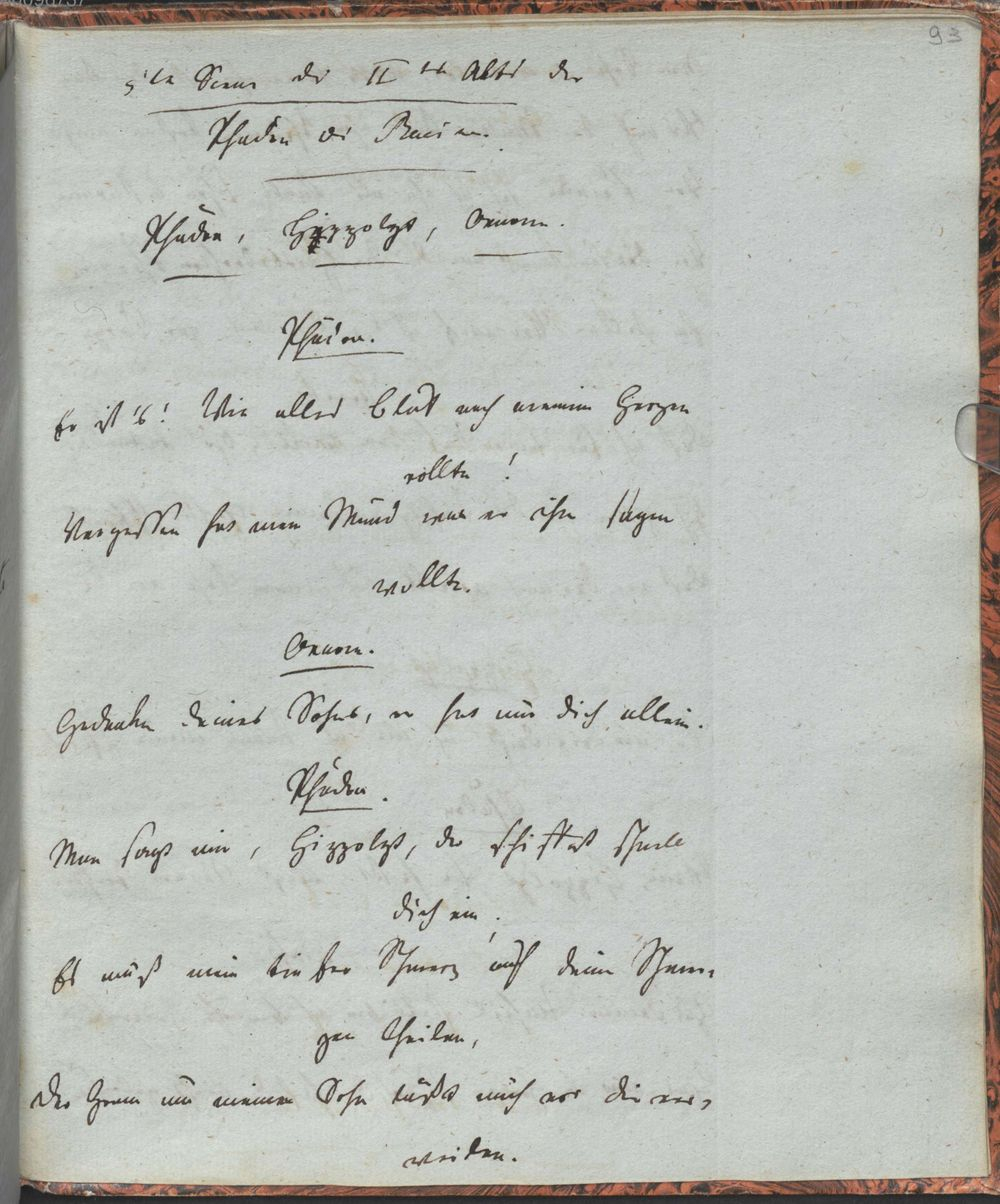 93
5te Scene des IIten Akts der
Phädra des Racine.
Phädra, Hippolyt, Oenone.
Phädra.
Er ist's! Wie alles Blut nach meinem Herzen
rollte!
Vergessen hat mein Mund was er ihm sagen
wollte.
Oenone.
Gedenke deines Sohns, er hat nur dich allein.
Phädra.
Man sagt mir, Hippolyt, du schiffest schnell
dich ein,
Es muß mein tiefer Schmerz auch deine Schmer-
zen theilen,
Der Gram um meinen Sohn läßt mich vor dir ver-
weilen.